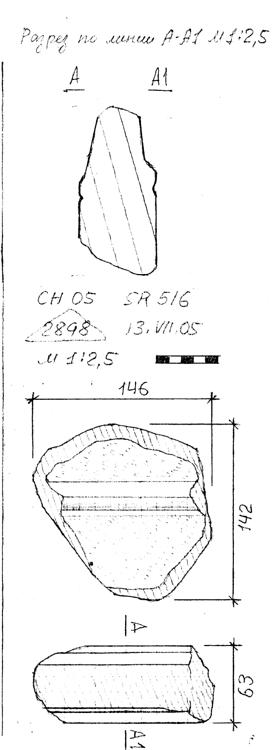 Разрез по линии А-А1 М 1:2,5
А А1
CH 05 SR 5/6
2898 13.VII.05
М 1:2,5
146
142
А
63
А1